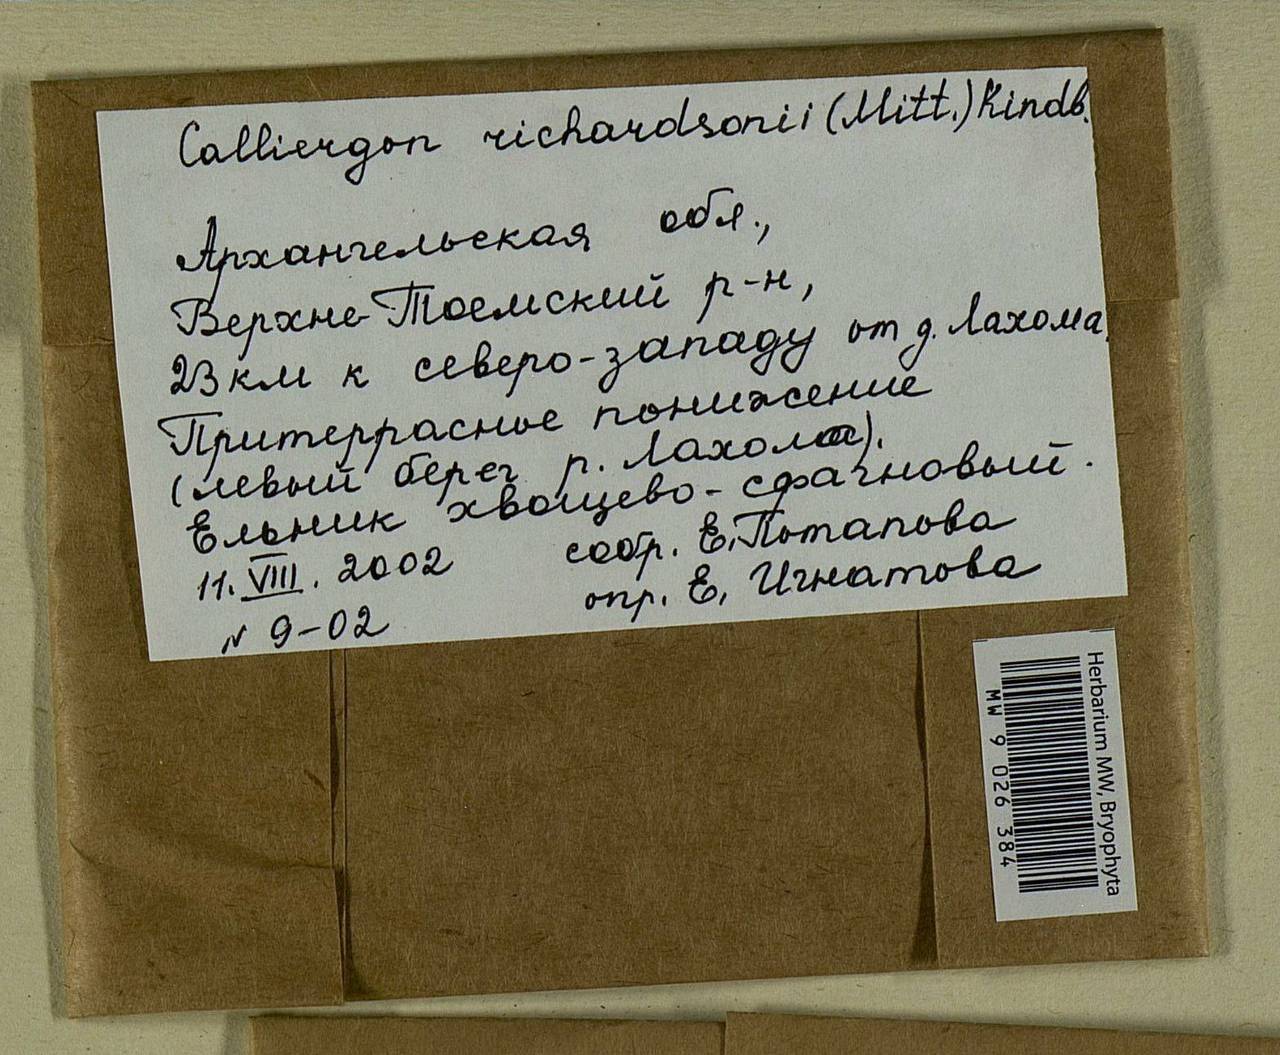 Calliergon richardsonii (Mitt.) Kindb.
Архангельская обл.,
Верхне-Тоемский р-н,
23 км к северо-западу от д. Лахома.
Притеррасное понижение
(левый берег р. Лахома).
Ельник хвощево-сфагновый.
11.VIII.2002 собр. Е. Потапова
N 9-02 опр. Е. Игнатова
Herbarium MW, Bryophyta
MW 9 026 384